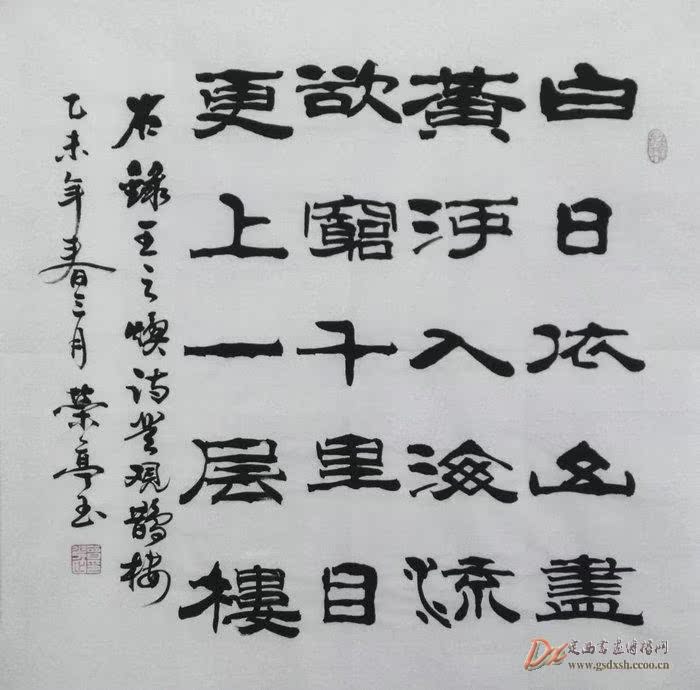 白日依山盡
黃河入海流
欲窮千里目
更上一层樓
右錄王之焕诗登观鹊楼
乙未年春三月 荣亭
定西书画传播网
www.gsdxsh.ccoo.cn